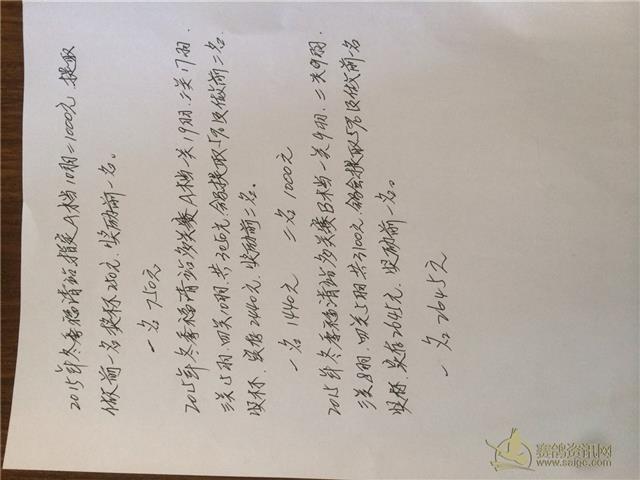 2015年冬季福清站指定A档10羽=1000元 提取
做前一名奖杯250元、奖励前一名。
一名 750元
2015年冬季福清站多关赛A档一关19羽.二关17羽.
三关15羽.四关10羽.共3050元.协会提取5%及做前二名
奖杯、实存2440元、奖励前二名。
一名 1440元 二名 1000元
2015年冬季福清站多关赛B档一关9羽.二关9羽.
三关8羽.四关5羽.共3100元.协会提取5%及做前一名
奖杯、实存2645元、奖励前一名。
一名 2645元
赛鸽资讯网
www.saige.com